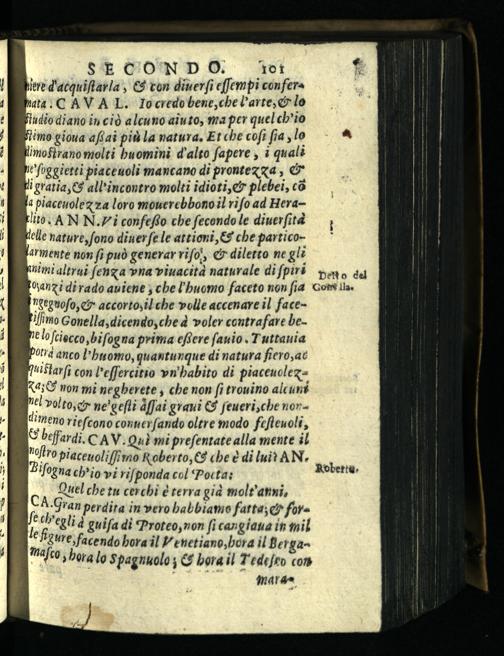 SECONDO. 101
niere d'acquistarla, & con diuersi essempi confer-
mata. CAVAL. Io credo bene, che l'arte, & lo
studio diano in ciò alcuno aiuto, ma per quel ch'io
stimo gioua assai più la natura. Et che cosi sia, lo
dimostrano molti huomini d'alto sapere, i quali
ne' soggietti piaceuoli mancano di prontezza, &
di gratia, & all'incontro molti idioti, & plebei, cõ
la piaceuolezza loro mouerebbono il riso ad Hera-
clito. ANN. Vi confesso che secondo le diuersità
delle nature, sono diuerse le attioni, & che partico-
larmente non si può generar riso, & diletto ne gli
animi altrui senza vna viuacità naturale di spiri
to, anzi di rado auiene, che l'huomo faceto non sia
ingegnoso, & accorto, il che volle accenare il face-
tissimo Gonella, dicendo, che à voler contrafare be-
ne lo sciocco, bisogna prima essere sauio. Tuttauia
potrà anco l'huomo, quantunque di natura fiero, ac
quistarsi con l'essercitio vn'habito di piaceuolez-
za; & non mi negherete, che non si trouino alcuni
nel volto, & ne' gesti assai graui & seueri, che non-
dimeno riescono conuersando oltre modo festeuoli,
& beffardi. CAV. Quì mi presentate alla mente il
nostro piaceuolissimo Roberto, & che è di lui? AN.
Bisogna ch'io vi risponda col Poeta:
Quel che tu cerchi è terra già molt'anni.
CA. Gran perdita in vero habbiamo fatta; & for-
se ch'egli à guisa di Proteo, non si cangiaua in mil
le figure, facendo hora il Venetiano, hora il Berga-
masco, hora lo Spagnuolo; & hora il Tedesco con
mara-
Detto del
Gonella.
Roberto.